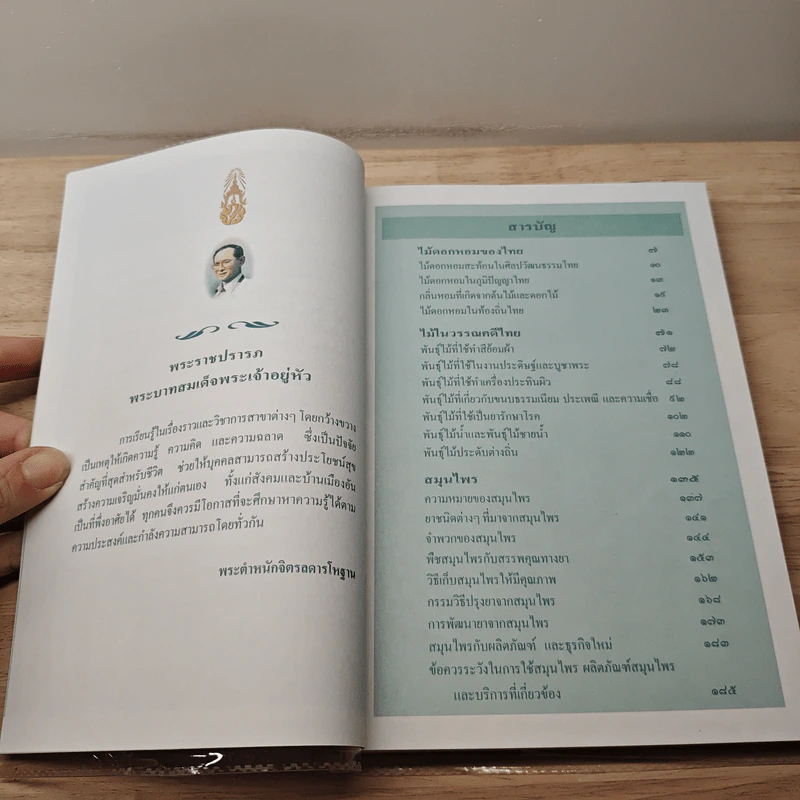 พระราชปรารภ
พระบาทสมเด็จพระเจ้าอยู่หัว
การเรียนรู้ในเรื่องราวและวิชาการสาขาต่างๆ โดยกว้างขวาง
เป็นเหตุให้เกิดความรู้ ความคิด และความฉลาด ซึ่งเป็นปัจจัย
สำคัญที่สุดสำหรับชีวิต ช่วยให้บุคคลสามารถสร้างประโยชน์สุข
สร้างความเจริญมั่นคงให้แก่ตนเอง ทั้งแก่สังคมและบ้านเมืองอัน
เป็นที่พึ่งอาศัยได้ ทุกคนจึงควรมีโอกาสที่จะศึกษาหาความรู้ได้ตาม
ความประสงค์และกำลังความสามารถโดยทั่วกัน
พระตำหนักจิตรลดารโหฐาน
สารบัญ
ไม้ดอกหอมของไทย ๗
ไม้ดอกหอมสะท้อนในศิลปวัฒนธรรมไทย ๑๐
ไม้ดอกหอมในภูมิปัญญาไทย ๑๓
กลิ่นหอมที่เกิดจากต้นไม้และดอกไม้ ๑๕
ไม้ดอกหอมในท้องถิ่นไทย ๒๓
ไม้ในวรรณคดีไทย ๗๑
พันธุ์ไม้ที่ใช้ทำสีย้อมผ้า ๗๒
พันธุ์ไม้ที่ใช้ในงานประดิษฐ์และบูชาพระ ๗๘
พันธุ์ไม้ที่ใช้ทำเครื่องประทินผิว ๘๘
พันธุ์ไม้ที่เกี่ยวกับขนบธรรมเนียม ประเพณี และความเชื่อ ๙๒
พันธุ์ไม้ที่ใช้เป็นยารักษาโรค ๑๐๒
พันธุ์ไม้น้ำและพันธุ์ไม้ชายน้ำ ๑๑๐
พันธุ์ไม้ประดับต่างถิ่น ๑๒๒
สมุนไพร ๑๓๕
ความหมายของสมุนไพร ๑๓๗
ยาชนิดต่างๆ ที่มาจากสมุนไพร ๑๔๑
จำพวกของสมุนไพร ๑๔๔
พืชสมุนไพรกับสรรพคุณทางยา ๑๕๓
วิธีเก็บสมุนไพรให้มีคุณภาพ ๑๖๒
กรรมวิธีปรุงยาจากสมุนไพร ๑๖๘
การพัฒนายาจากสมุนไพร ๑๗๓
สมุนไพรกับผลิตภัณฑ์ และธุรกิจใหม่ ๑๘๓
ข้อควรระวังในการใช้สมุนไพร ผลิตภัณฑ์สมุนไพร
และบริการที่เกี่ยวข้อง ๑๘๕